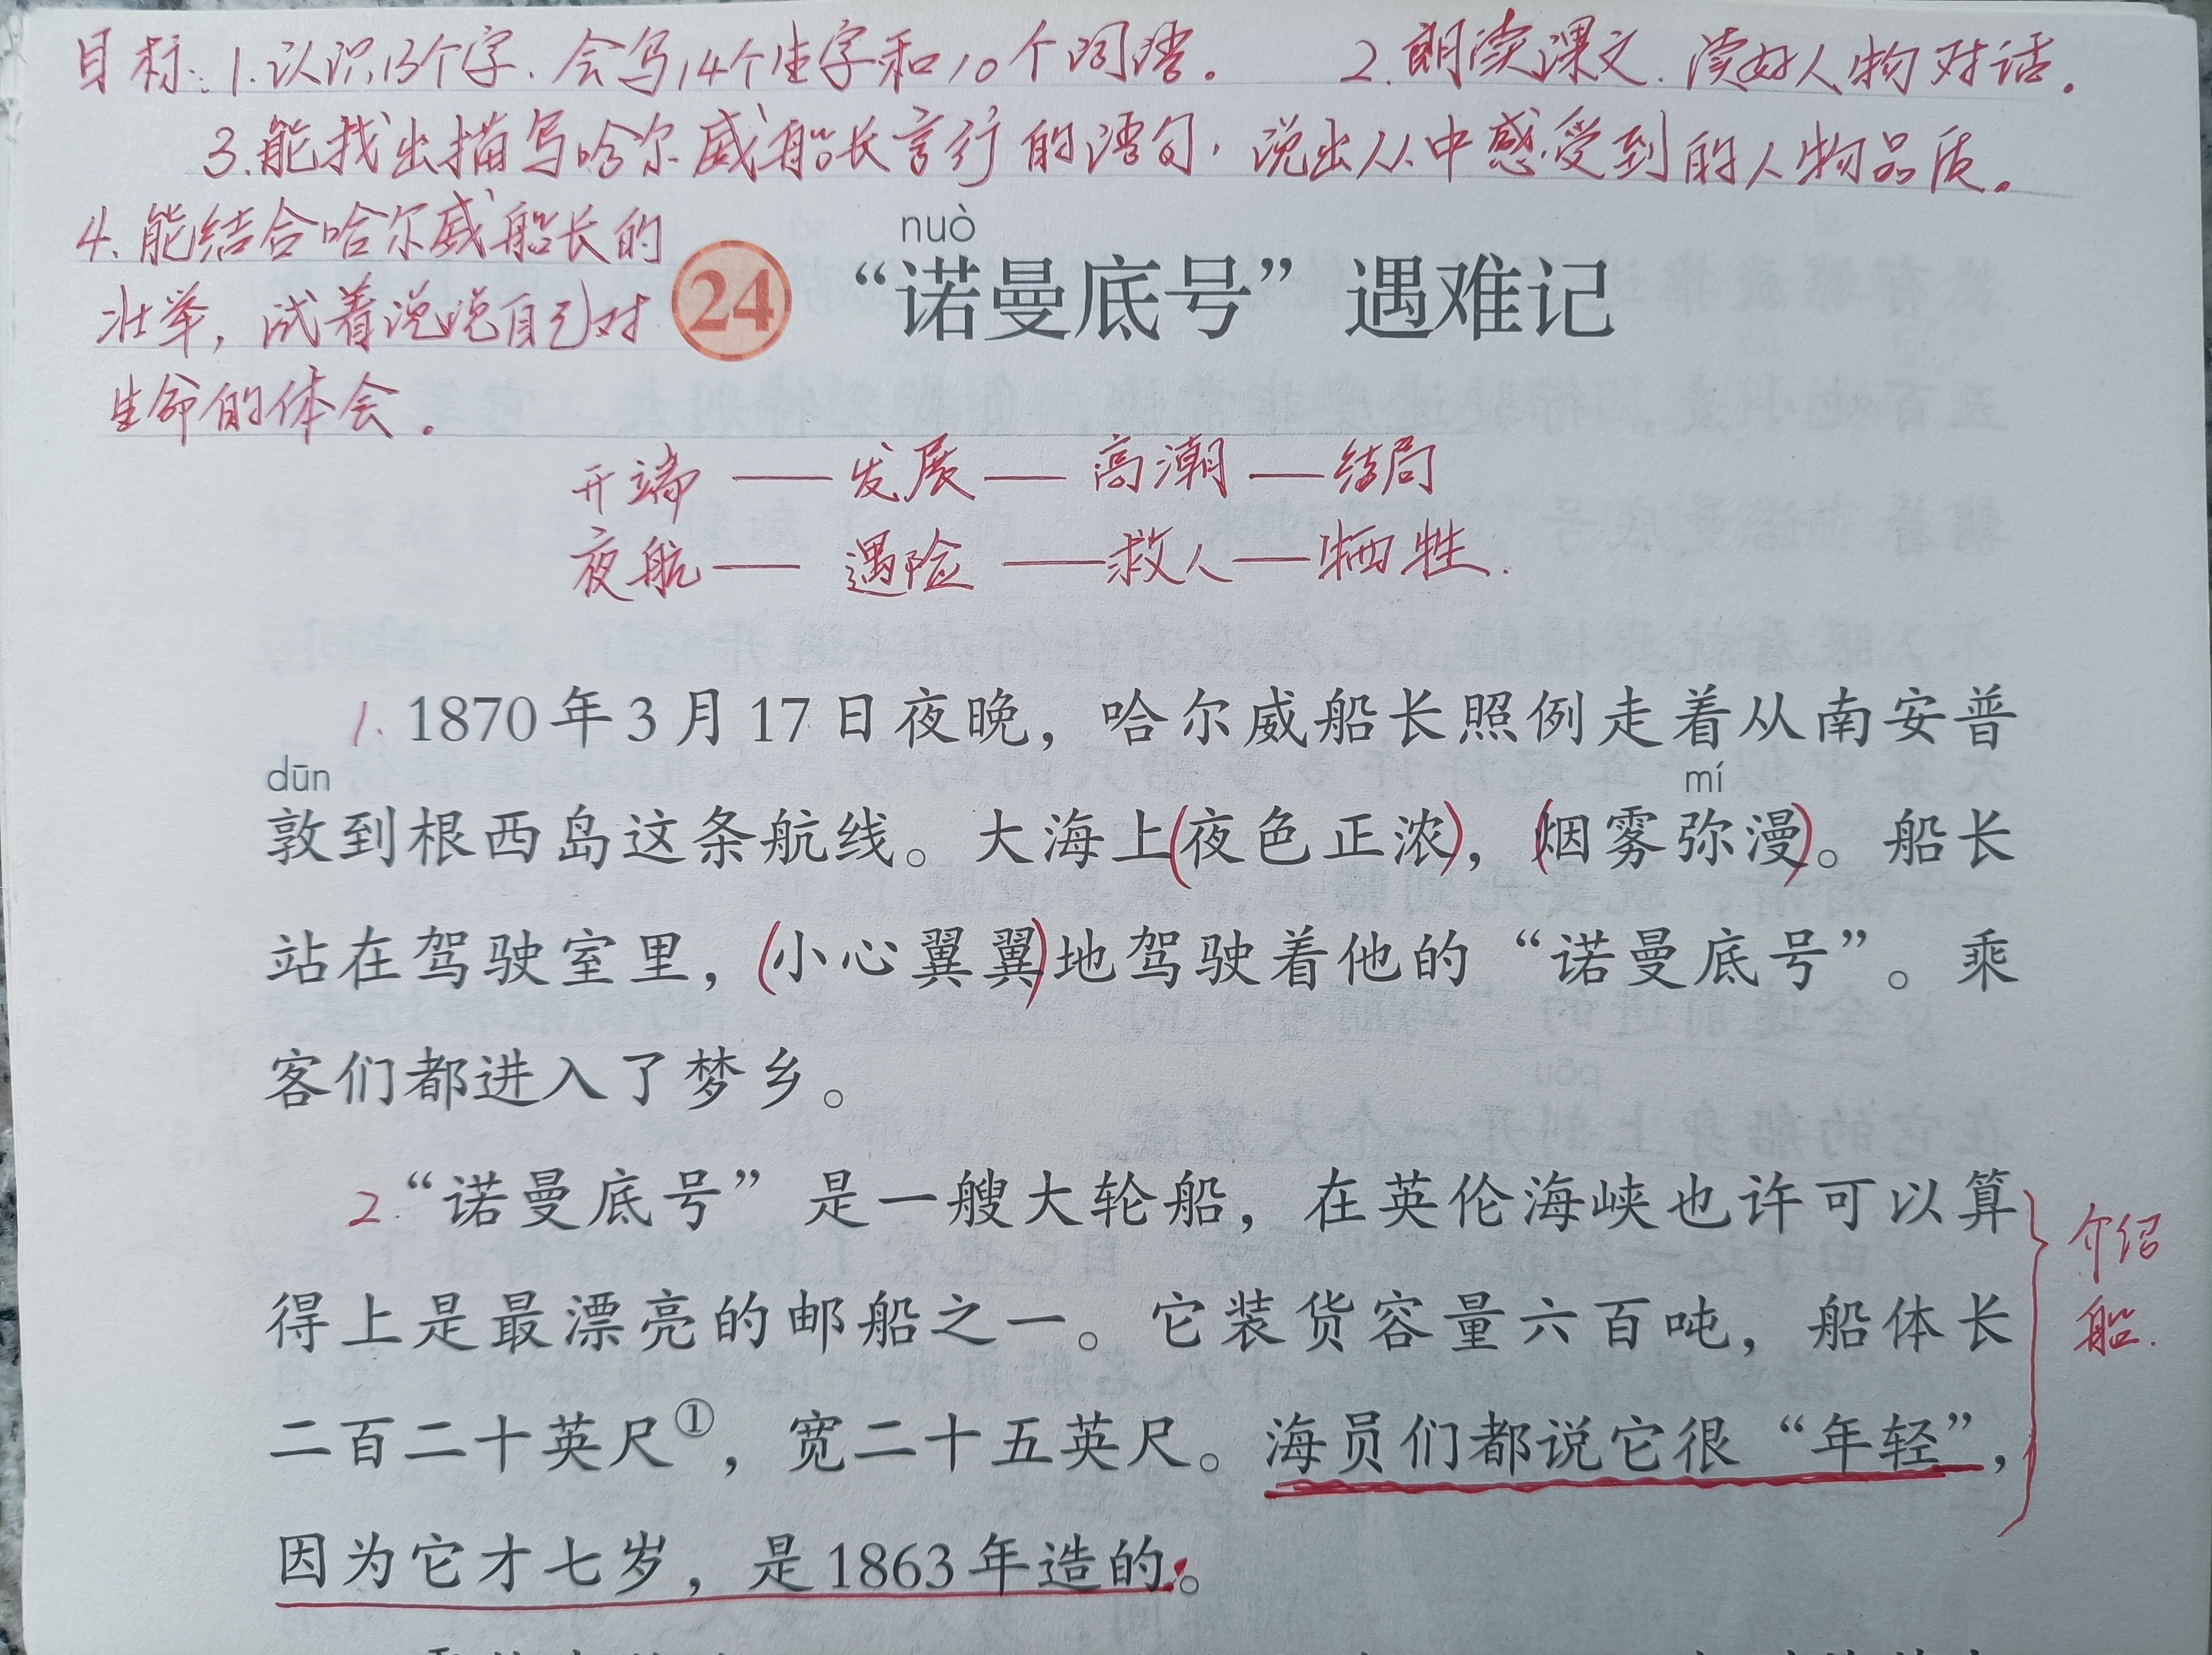 目标:1.认识13个字、会写14个生字和10个词语。 2.朗读课文.读好人物对话。
3.能找出描写哈尔威船长言行的语句,说出从中感受到的人物品质。
4.能结合哈尔威船长的
壮举,试着说说自己对
生命的体会。
nuò
24 “诺曼底号”遇难记
开端——发展——高潮——结局
夜航——遇险——救人——牺牲.
1.1870年3月17日夜晚，哈尔威船长照例走着从南安普
dūn mí
敦到根西岛这条航线。大海上(夜色正浓)，(烟雾弥漫)。船长
站在驾驶室里，(小心翼翼)地驾驶着他的“诺曼底号”。乘
客们都进入了梦乡。
2.“诺曼底号”是一艘大轮船，在英伦海峡也许可以算
得上是最漂亮的邮船之一。它装货容量六百吨，船体长
二百二十英尺①，宽二十五英尺。海员们都说它很“年轻”，
因为它才七岁，是1863年造的。
介绍
船.